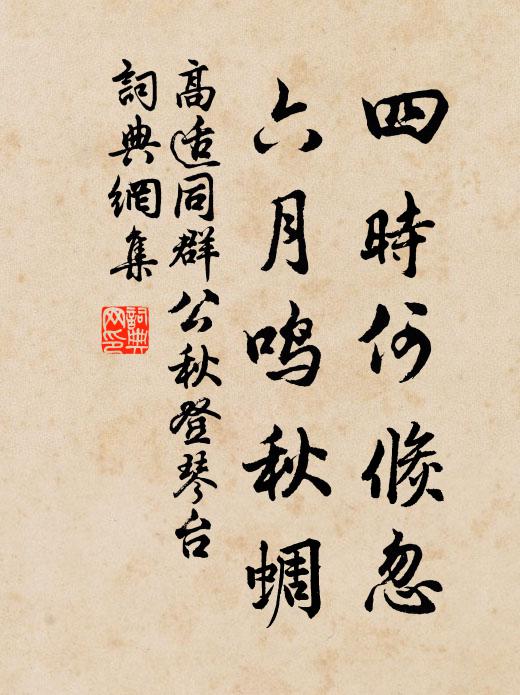 四時何倐忽
六月鸣秋蜩
高适同群公秋登琴台
詞典網集
詞典网印